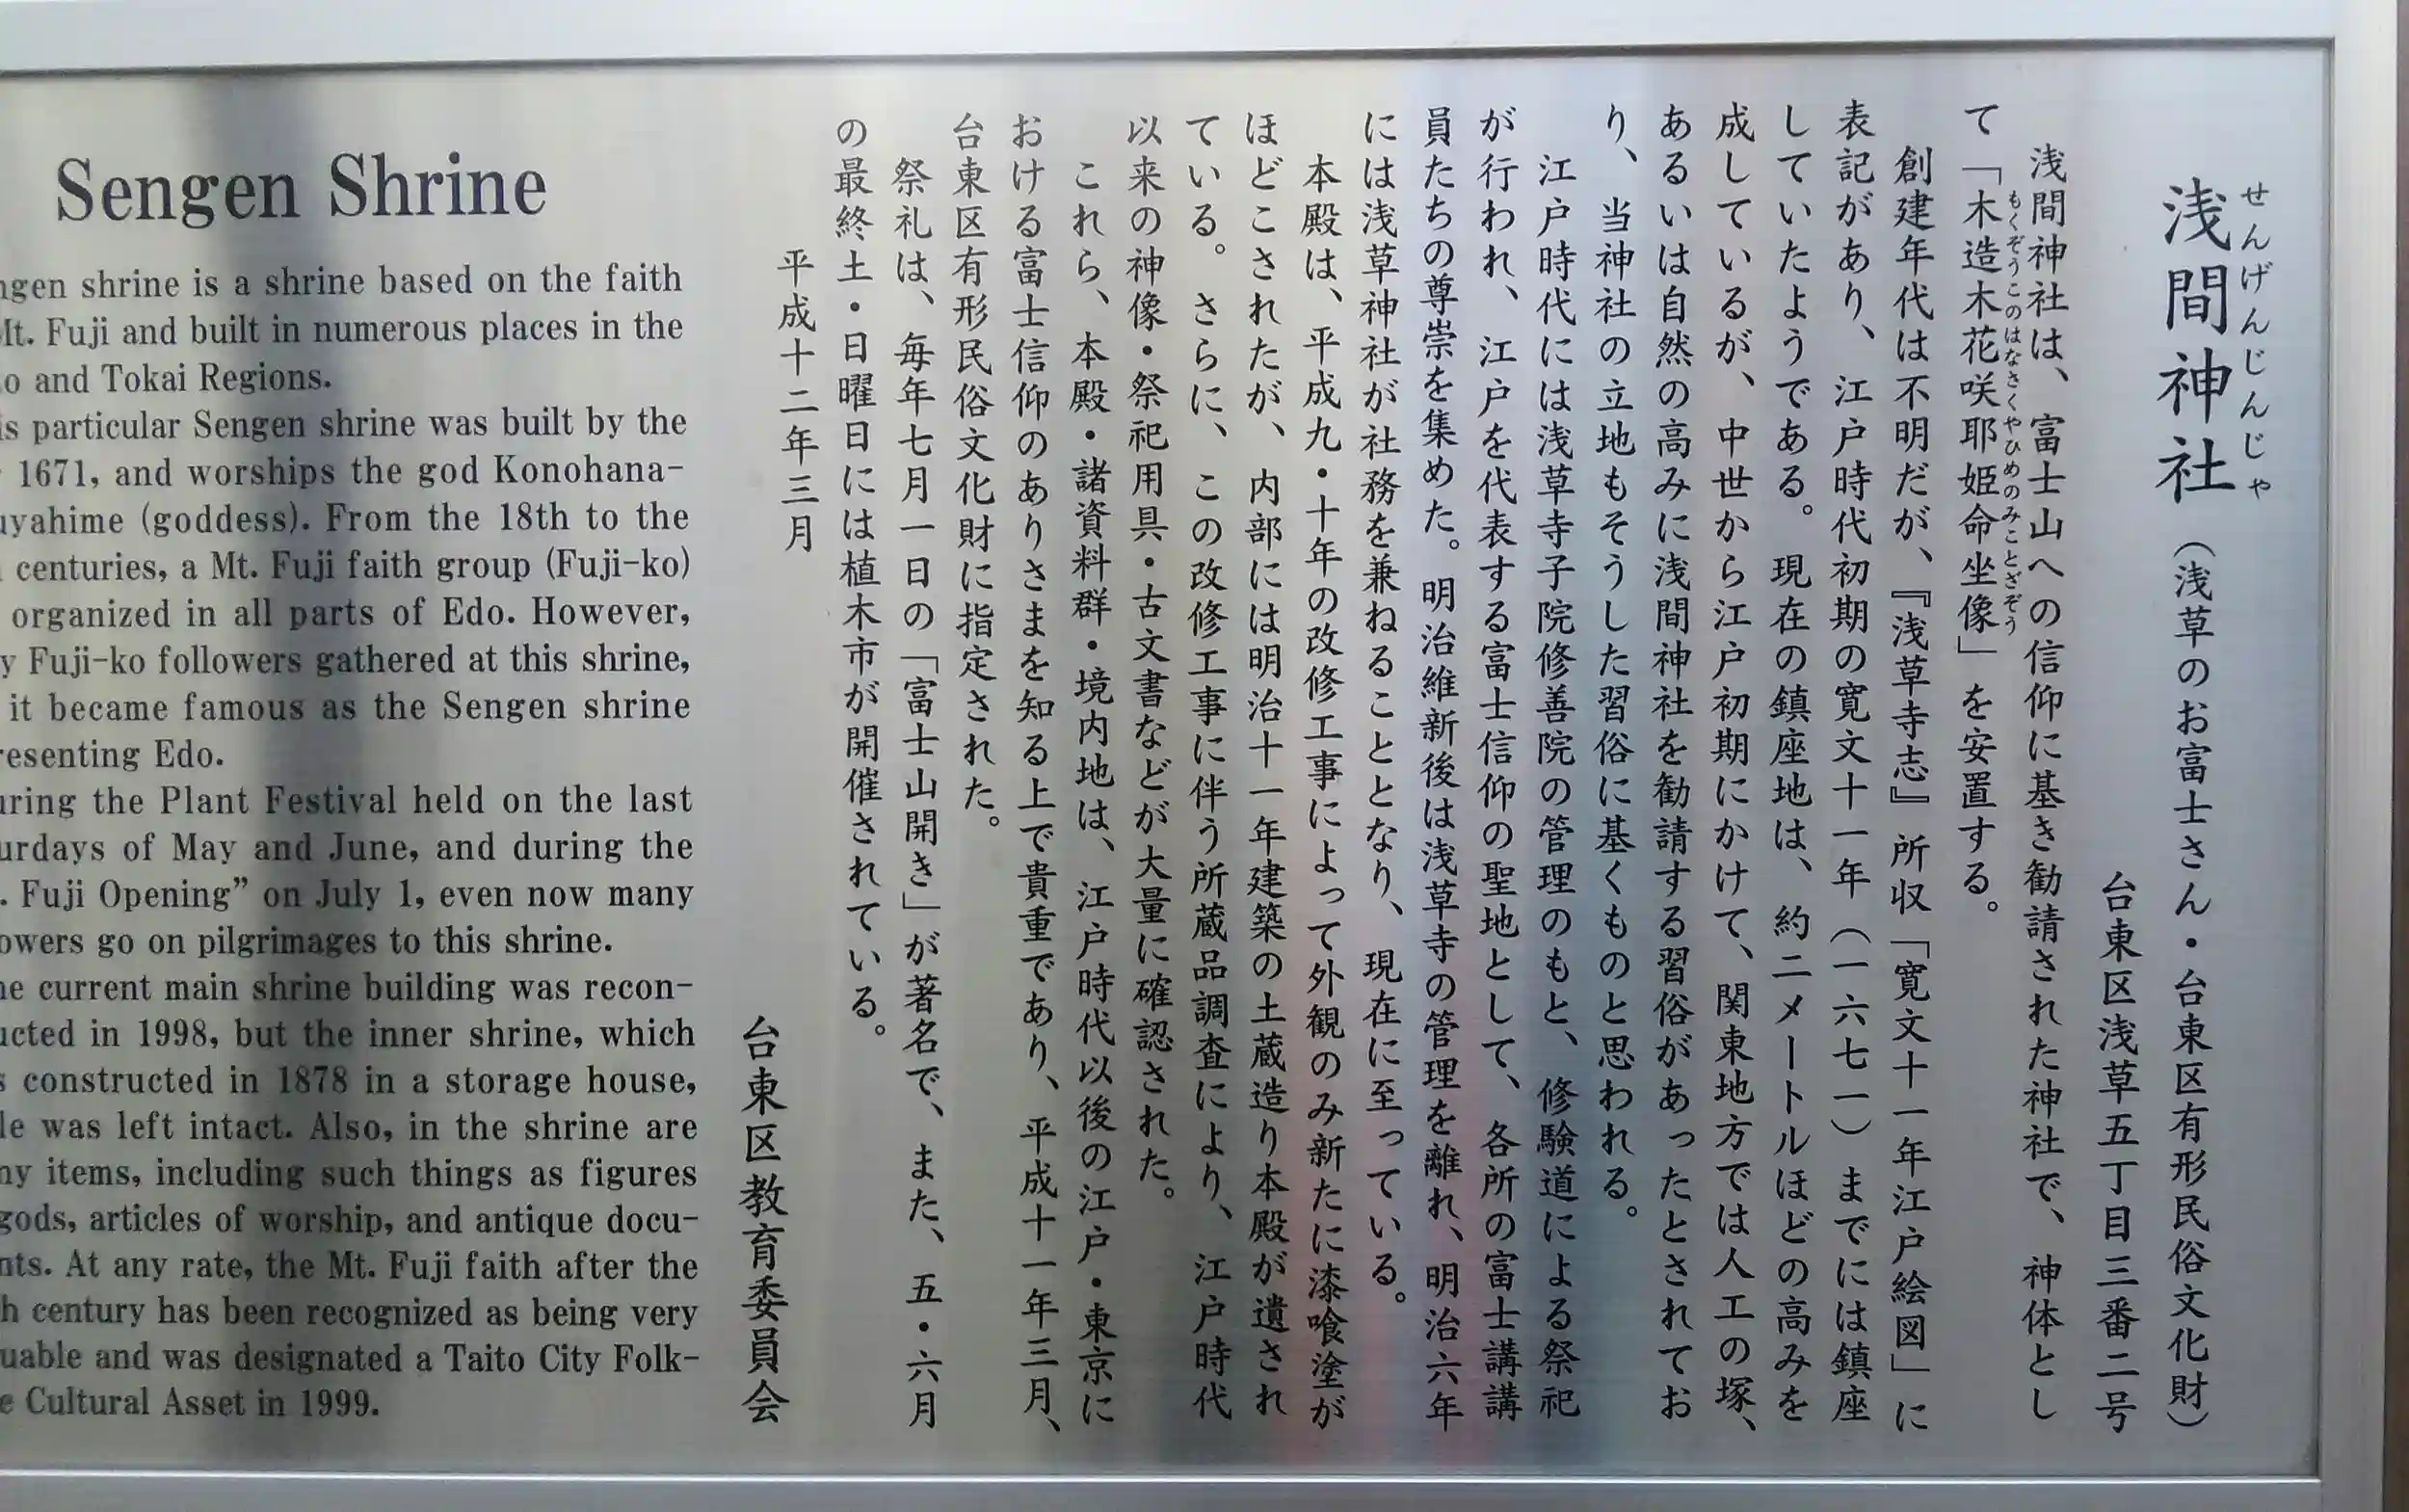 せんげんじんじゃ
浅間神社（浅草のお富士さん・台東区有形民俗文化財）
台東区浅草五丁目三番二号
浅間神社は、富士山への信仰に基き勧請された神社で、神体とし
もくぞうこのはなさくやひめのみことざぞう
て「木造木花咲耶姫命坐像」を安置する。
創建年代は不明だが、『浅草寺志』所収「寛文十一年江戸絵図」に
表記があり、江戸時代初期の寛文十一年（一六七一）までには鎮座
していたようである。現在の鎮座地は、約二メートルほどの高みを
成しているが、中世から江戸初期にかけて、関東地方では人工の塚、
あるいは自然の高みに浅間神社を勧請する習俗があったとされてお
り、当神社の立地もそうした習俗に基くものと思われる。
江戸時代には浅草寺子院修善院の管理のもと、修験道による祭祀
が行われ、江戸を代表する富士信仰の聖地として、各所の富士講講
員たちの尊崇を集めた。明治維新後は浅草寺の管理を離れ、明治六年
には浅草神社が社務を兼ねることとなり、現在に至っている。
本殿は、平成九・十年の改修工事によって外観のみ新たに漆喰塗が
ほどこされたが、内部には明治十一年建築の土蔵造り本殿が遺され
ている。さらに、この改修工事に伴う所蔵品調査により、江戸時代
以来の神像・祭祀用具・古文書などが大量に確認された。
これら、本殿・諸資料群・境内地は、江戸時代以後の江戸・東京に
おける富士信仰のありさまを知る上で貴重であり、平成十一年三月、
台東区有形民俗文化財に指定された。
祭礼は、毎年七月一日の「富士山開き」が著名で、また、五・六月
の最終土・日曜日には植木市が開催されている。
平成十二年三月
台東区教育委員会
Sengen Shrine
ngen shrine is a shrine based on the faith
Mt. Fuji and built in numerous places in the
o and Tokai Regions.
is particular Sengen shrine was built by the
1671, and worships the god Konohana-
uyahime (goddess). From the 18th to the
centuries, a Mt. Fuji faith group (Fuji-ko)
organized in all parts of Edo. However,
y Fuji-ko followers gathered at this shrine,
it became famous as the Sengen shrine
resenting Edo.
uring the Plant Festival held on the last
urdays of May and June, and during the
. Fuji Opening” on July 1, even now many
owers go on pilgrimages to this shrine.
he current main shrine building was recon-
ucted in 1998, but the inner shrine, which
s constructed in 1878 in a storage house,
le was left intact. Also, in the shrine are
ny items, including such things as figures
gods, articles of worship, and antique docu-
nts. At any rate, the Mt. Fuji faith after the
h century has been recognized as being very
uable and was designated a Taito City Folk-
e Cultural Asset in 1999.